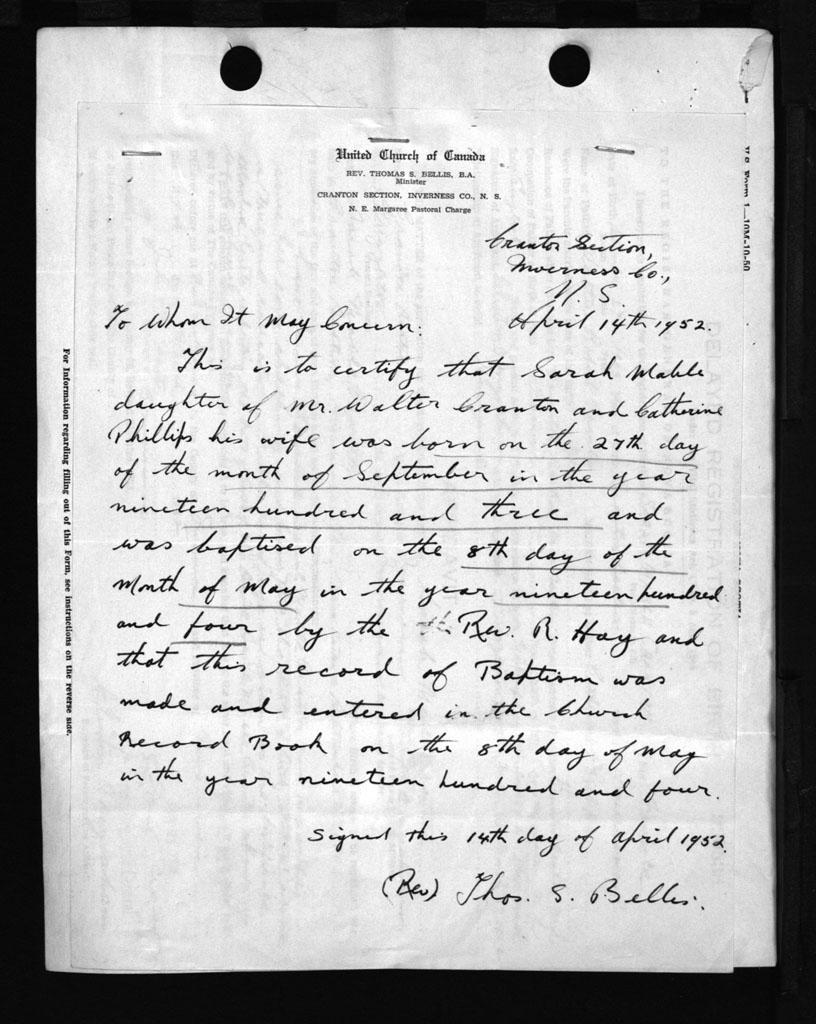 United Church of Canada
REV. THOMAS S. BELLIS, B.A.
Minister
CRANTON SECTION, INVERNESS CO., N. S.
N. E. Margaree Pastoral Charge
Cranton Section,
Inverness Co.,
N. S.
To Whom It May Concern: April 14th 1952.
This is to certify that Sarah Mable
daughter of Mr. Walter Cranton and Catherine
Phillips his wife was born on the 27th day
of the month of September in the year
nineteen hundred and three and
was baptised on the 8th day of the
month of May in the year nineteen hundred
and four by the Rev. R. Hay and
that this record of Baptism was
made and entered in the Church
Record Book on the 8th day of May
in the year nineteen hundred and four.
Signed this 14th day of April 1952.
(Rev) Thos. S. Bellis.
For Information regarding filling out of this Form, see instructions on the reverse side.
Form 1—10M-10-50